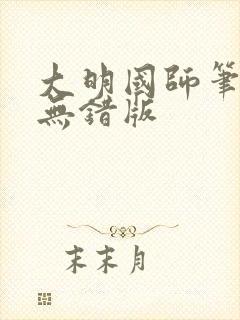 大明國師筆
無錯版
末末月